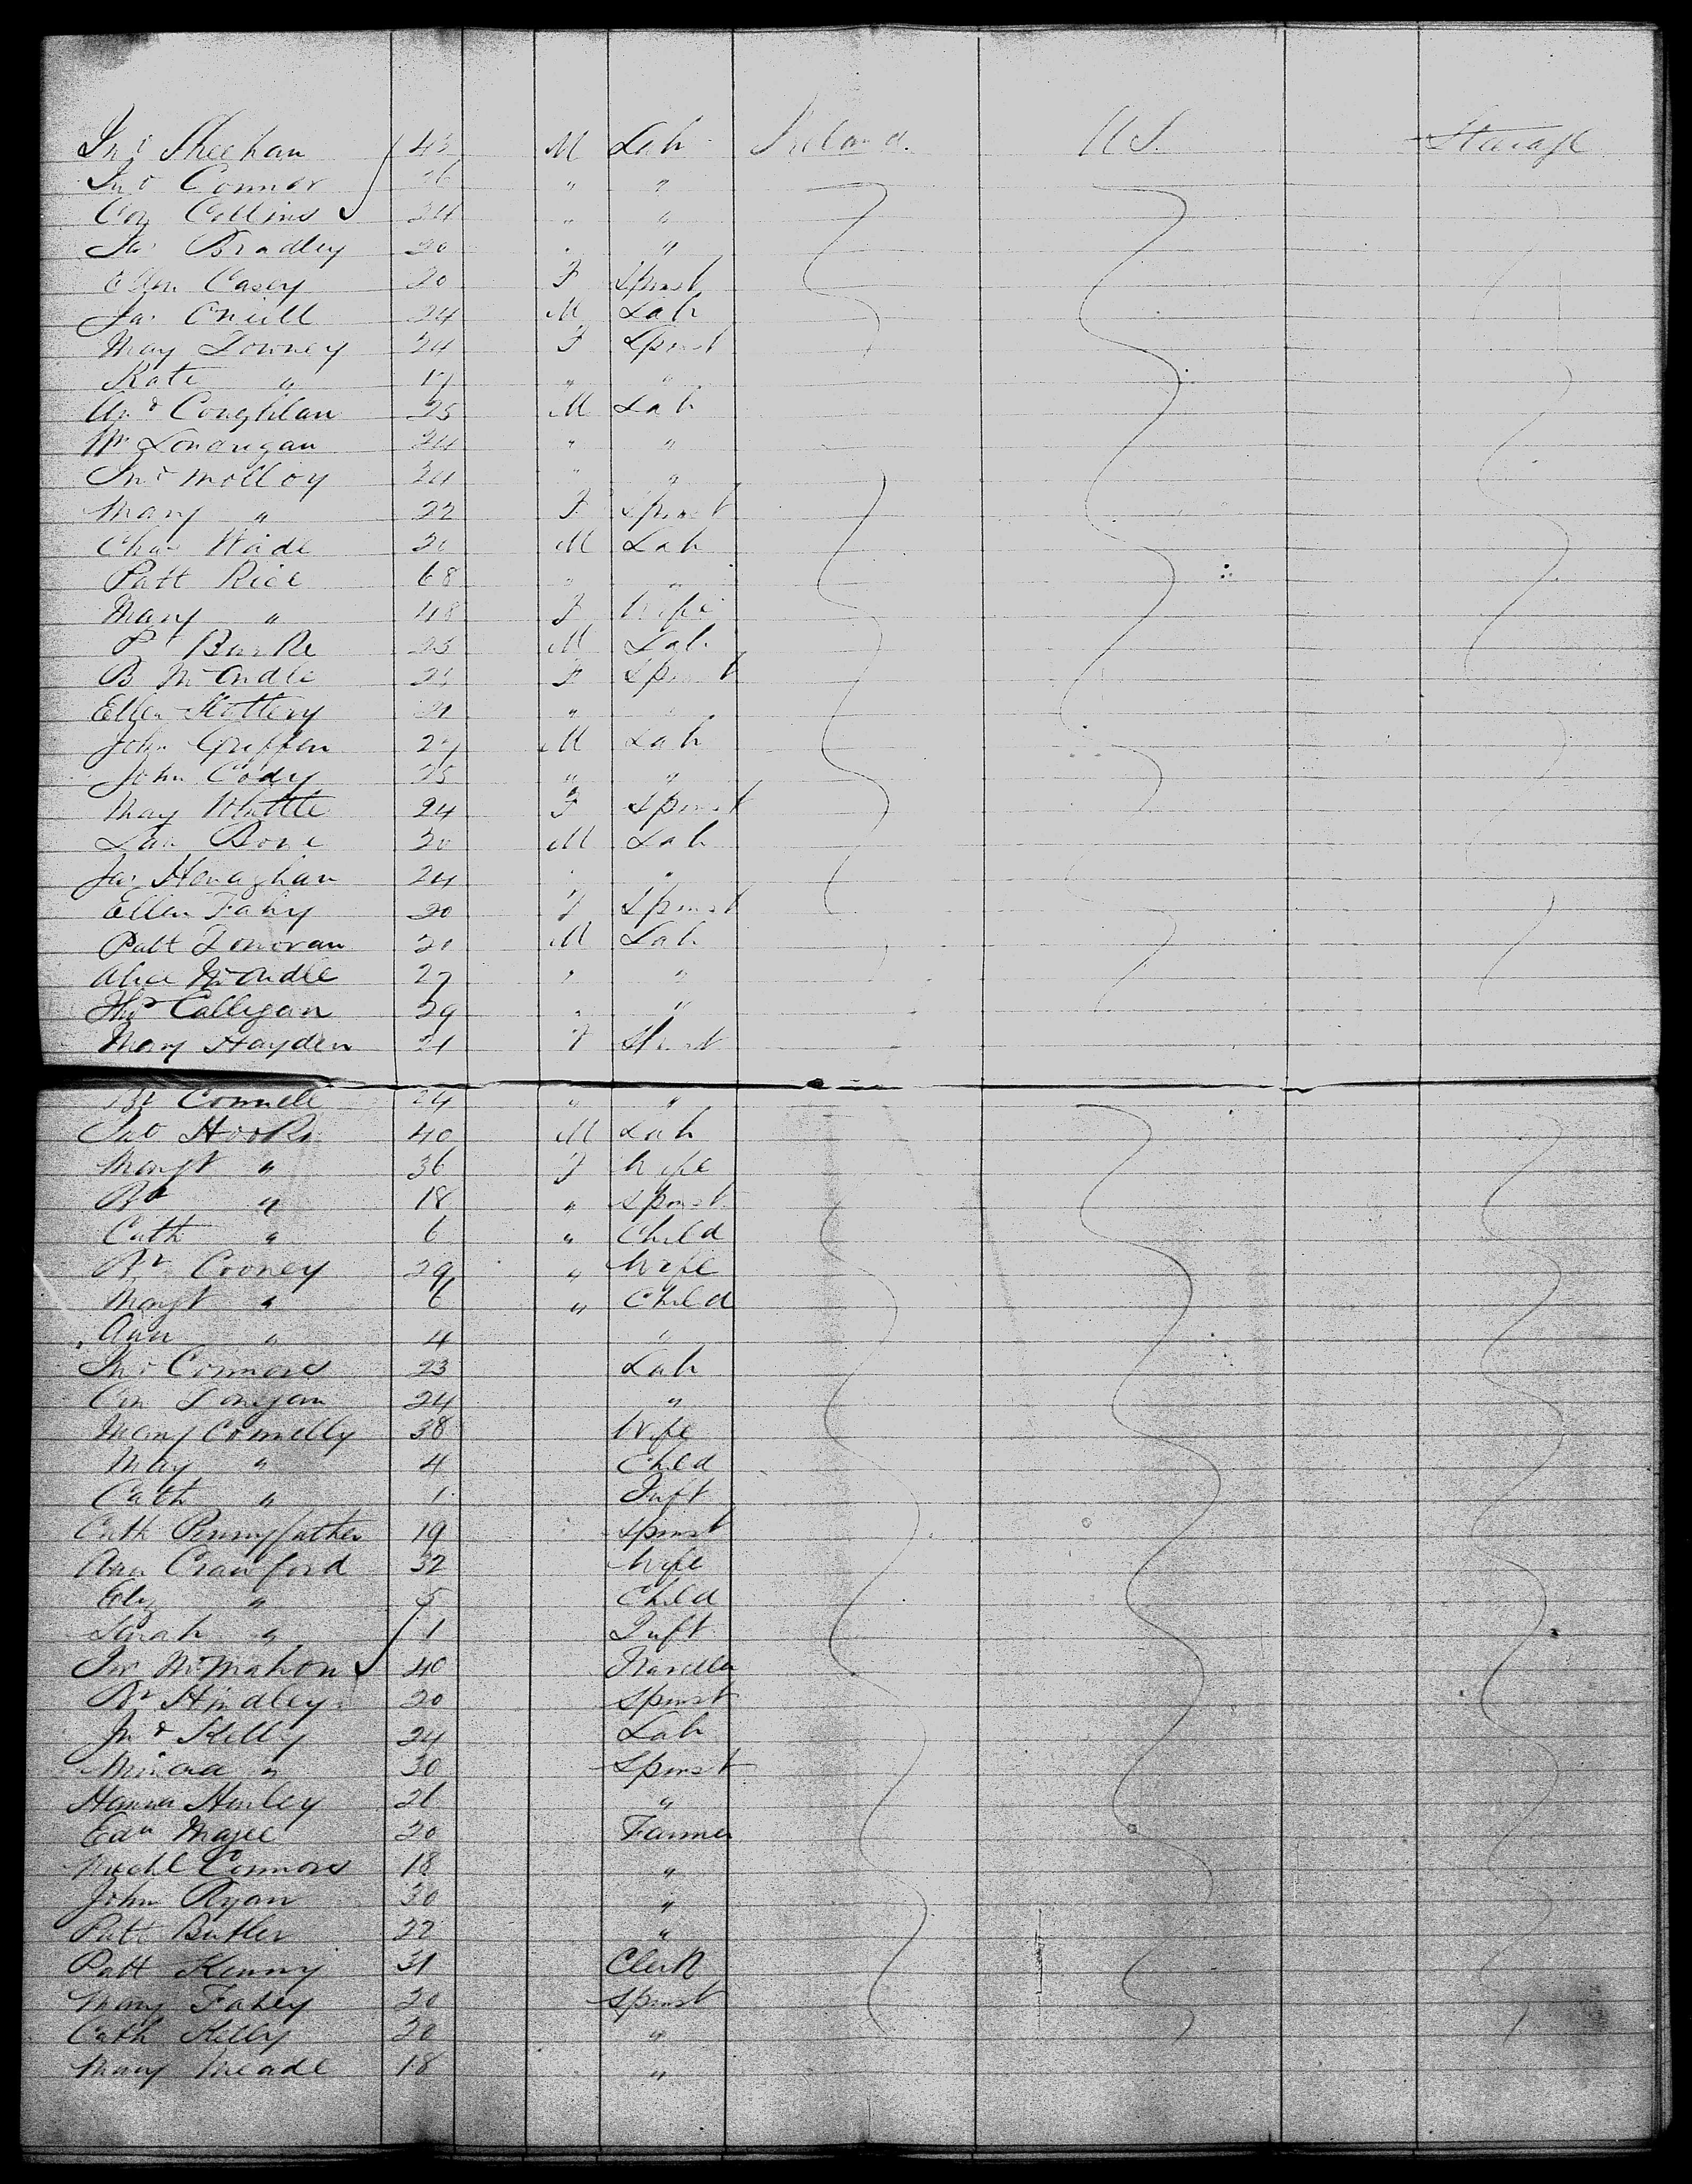 Jno Sheehan 43 M Lab Ireland U S. Steerage
Jno Connor 26 " "
Con Collins 24 " "
Jas Bradley 20 " "
Ellen Casey 20 F Spinst
Jas Oneill 24 M Lab
May Downey 24 F Spinst
Kate " 17 " "
And Coughlan 25 M Lab
Wm Londrigan 24 " "
Jno Molloy 24 " "
Mary " 22 F Spinst
Chas Wade M Lab
Patt Rice 68 " "
Mary " 48 F Wife
P Burke 25 M Lab
B McArdle F Spinst
Ellen Slottery 21 " "
John Griffen M Lab
John Cody 25 " "
May Whittle 24 F Spinst
Lau Bone 20 M Lab
Jas Henaghan 24 " "
Ellen Fahy 20 F Spinst
Patt Donovan M Lab
Alice McArdle 27 " "
Thos Calligan 29 " "
Mary Hayden 21 F Spinst
Bt Connell 24 " "
Jno Hooks 40 M Lab
Margt " 36 F Wife
Bt " 18 " Spinst
Cath " 6 " Child
Bt Cooney 29 " Wife
Margt " 6 " Child
Ann " 4 "
Jno Connors 23 Lab
Con Donegan 24 "
Mary Connelly 38 Wife
May " 4 Child
Cath " 1 Inft
Cath Pennyfather 19 Spinst
Ann Crawford 32 Wife
Eliz " 5 Child
Sarah " 1 Inft
Jas McMahon 40
Bt Hindley 20 Spinst
Jno Kelly 24 Lab
" 30 Spinst
Hanna Henley 21 "
Edn Magee 20 Farmer
Michl Connors 18 "
John Ryan 30 "
Patt Butler 22 "
Patt Kenny 31 Clerk
Mary Fahey 20 Spinst
Cath Kelly 20 "
Mary Meade 18 "